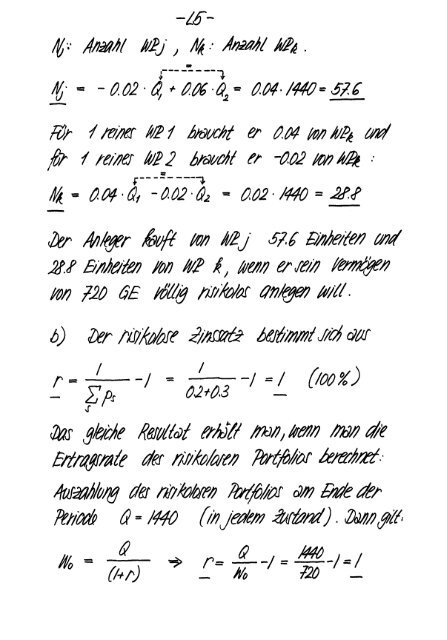 -L5-
Nj: Anzahl WP j, Nk: Anzahl WP k.
=
Nj = - 0.02 · Q1 + 0.06 · Q2 = 0.04 · 1440 = 57.6
Für 1 reines WP 1 braucht er 0.04 von WPk und
für 1 reines WP 2 braucht er -0.02 von WPk :
=
Nk = 0.04 · Q1 - 0.02 · Q2 = 0.02 · 1440 = 28.8
Der Anleger kauft von WP j 57.6 Einheiten und
28.8 Einheiten von WP k, wenn er sein Vermögen
von 720 GE völlig risikolos anlegen will.
b) Der risikolose Zinssatz bestimmt sich aus
r = 1 / ∑s ps - 1 = 1 / 0.2+0.3 - 1 = 1 (100%)
Das gleiche Resultat erhält man, wenn man die
Ertragsrate des risikolosen Portfolios berechnet:
Auszahlung des risikolosen Portfolios am Ende der
Periode Q = 1440 (in jedem Zustand). Dann gilt:
W0 = Q / (1+r) ⇒ r = Q / W0 - 1 = 1440 / 720 - 1 = 1